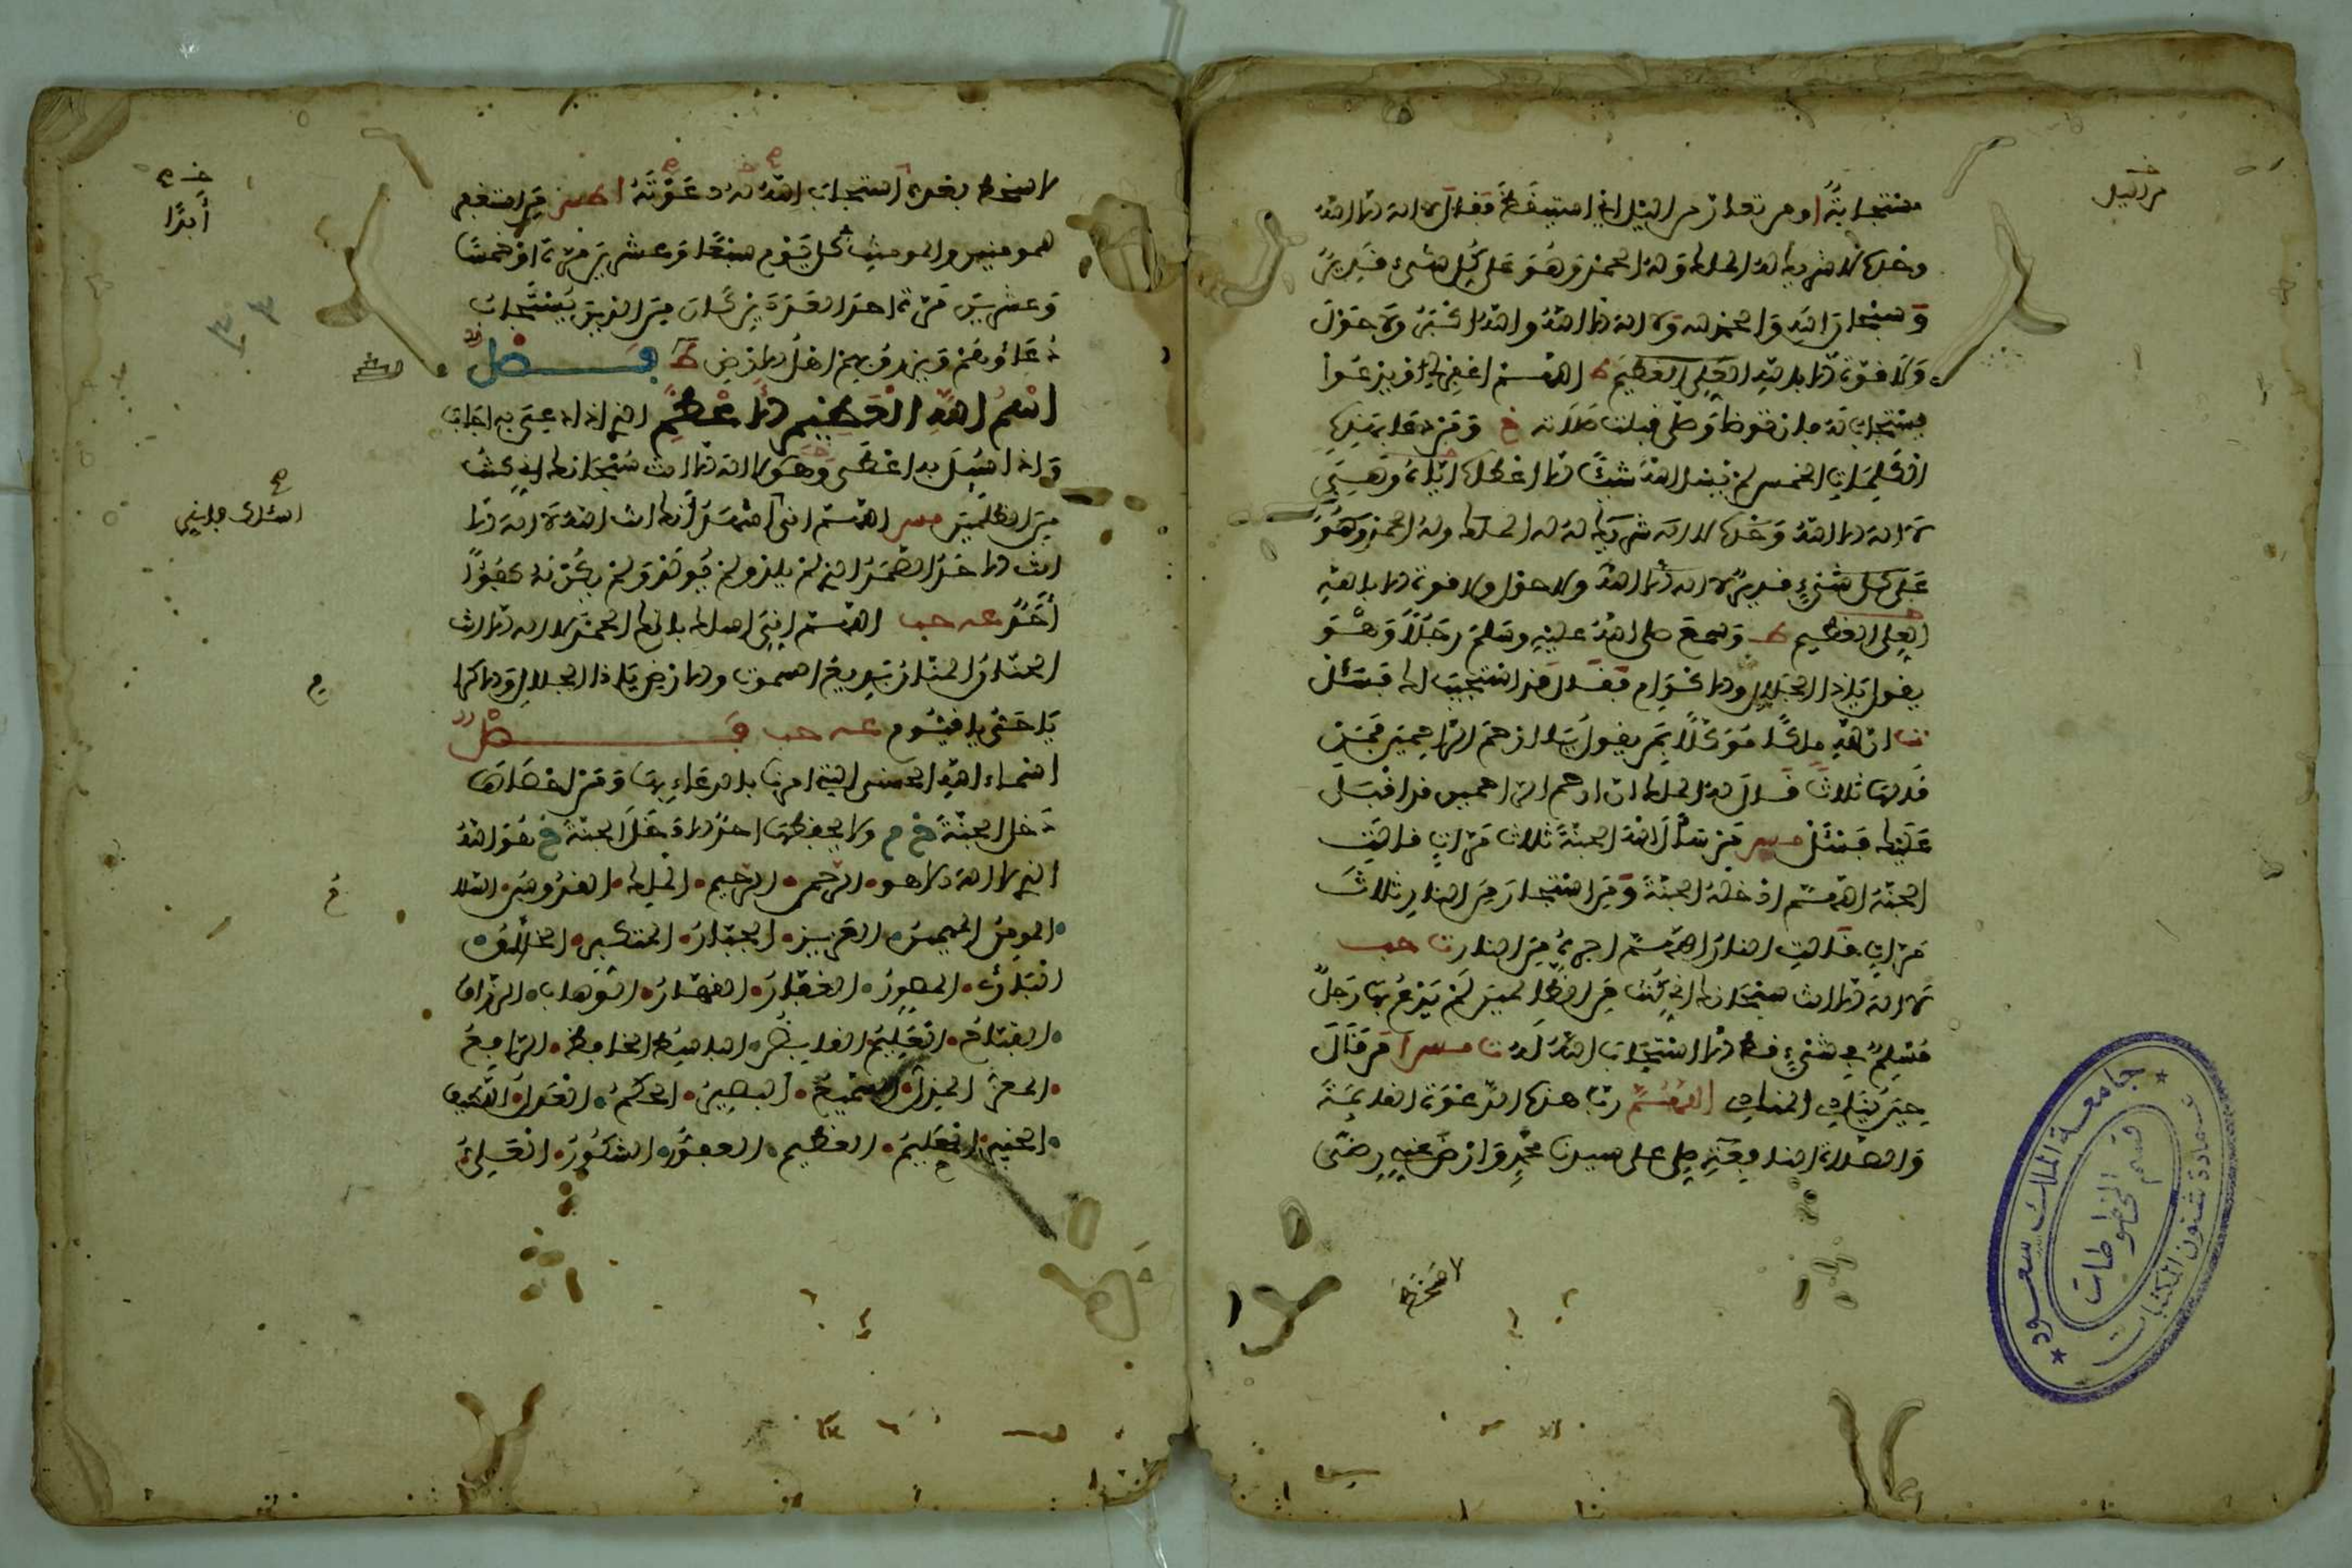 مستجابة او من تعار من اليل اي استيقظ فقال لا اله الا الله
وحده لا شريك له له الملك وله الحمد وهو على كل شيء قدير
وسبحان الله والحمد لله ولا اله الا الله والله اكبر ولا حول
ولا قوة الا بالله العلي العظيم اللهم اغفر لي او يدعوا
يستجاب له فان توضأ وصلى قبلت صلاته خ ومن دعا بهذه
الكلمات الخمس لم يسئل الله شيئا الا اعطاه اياه وهي
لا اله الا الله وحده لا شريك له له الملك وله الحمد وهو
على كل شيء قدير لا اله الا الله ولا حول ولا قوة الا بالله
العلي العظيم ط وسمع صلى الله عليه وسلم رجلا وهو
يقول ياذا الجلال والاكرام فقال قد استجيب لك فسئل
ت ان لله ملكا موكلا بمن يقول يا ارحم الراحمين فمن
قالها ثلاثا قال له الملك ان ارحم الراحمين قد اقبل
عليك فسئل مس من سأل الله الجنة ثلاث مرات قالت
الجنة اللهم ادخله الجنة ومن استجار من النار ثلاث
مرات قالت النار اللهم اجره من النار ت حب
لا اله الا انت سبحانك اني كنت من الظالمين لم يدع بها رجل
مسلم في شيء قط الا استجاب الله له ت مس ا من قال
حين ينادي المنادي اللهم رب هذه الدعوة القايمة
والصلاة النافعة صل على سيدنا محمد وارض عنه رضى
من اليل
لا سخط
جامعة الملك سعود
عمادة شئون المكتبات
قسم المخطوطات
لا سخط بعده استجاب الله له دعوته ا من استغفر
للمومنين والمومنات كل يوم سبعا وعشرين مرة او خمسا
وعشرين مرة احد العددين كان من الذين يستجاب
دعاؤهم ويرزق بهم اهل الارض ط فصل
اسم الله العظيم الاعظم الذي اذا دعي به اجاب
واذا سئل به اعطى وهو لا اله الا انت سبحانك اني كنت
من الظلمين مس اللهم اني اسئلك انك انت الله لا اله الا
انت الاحد الصمد الذي لم يلد ولم يولد ولم يكن له كفؤا
أحد عه حب اللهم اني اسئلك بان لك الحمد لا اله الا انت
الحنان المنان بديع السموت والارض ياذا الجلال والاكرام
يا حي يا قيوم عه حب فصل
اسماء الله الحسنى التي امرنا بالدعاء بها ومن احصاها
دخل الجنة خ م ولا يحفظها احد الا دخل الجنة خ هو الله
الذي لا اله الا هو الرحمن الرحيم الملك القدوس السلام
المومن المهيمن العزيز الجبار المتكبر الخالق
البارئ المصور الغفار القهار الوهاب الرزاق
الفتاح العليم القابض الباسط الخافض الرافع
المعز المذل السميع البصير الحكم العدل اللطيف
الخبير الحليم العظيم الغفور الشكور العلي
أبدا
اسئلك
م
خ